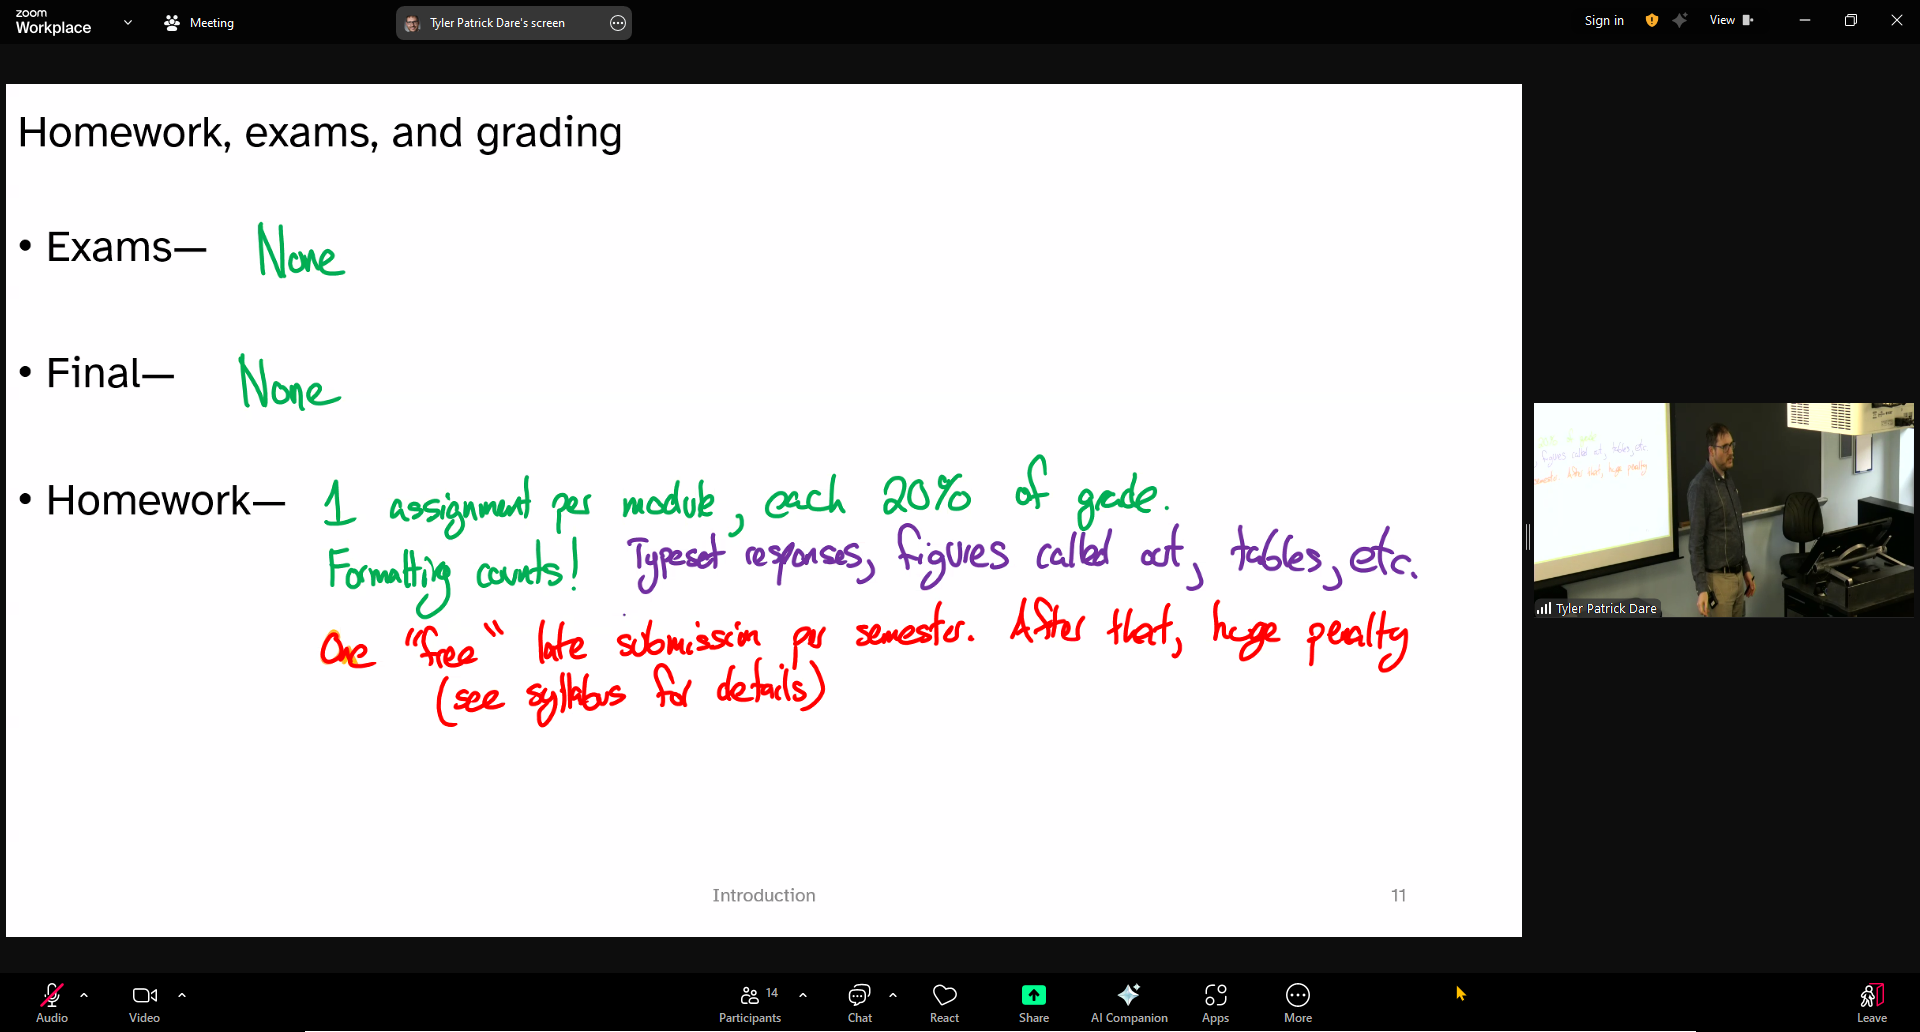 zoom
Workplace
Meeting
Tyler Patrick Dare's screen
Sign in
View
Homework, exams, and grading
• Exams— None
• Final— None
• Homework— 1 assignment per module, each 20% of grade.
Formatting counts! Typeset responses, figures called out, tables, etc.
One "free" late submission per semester. After that, huge penalty
(see syllabus for details)
Introduction
11
20% of grade
figures called out, tables, etc.
semester. After that, huge penalty
Tyler Patrick Dare
Audio
Video
14
Participants
Chat
React
Share
AI Companion
Apps
More
Leave